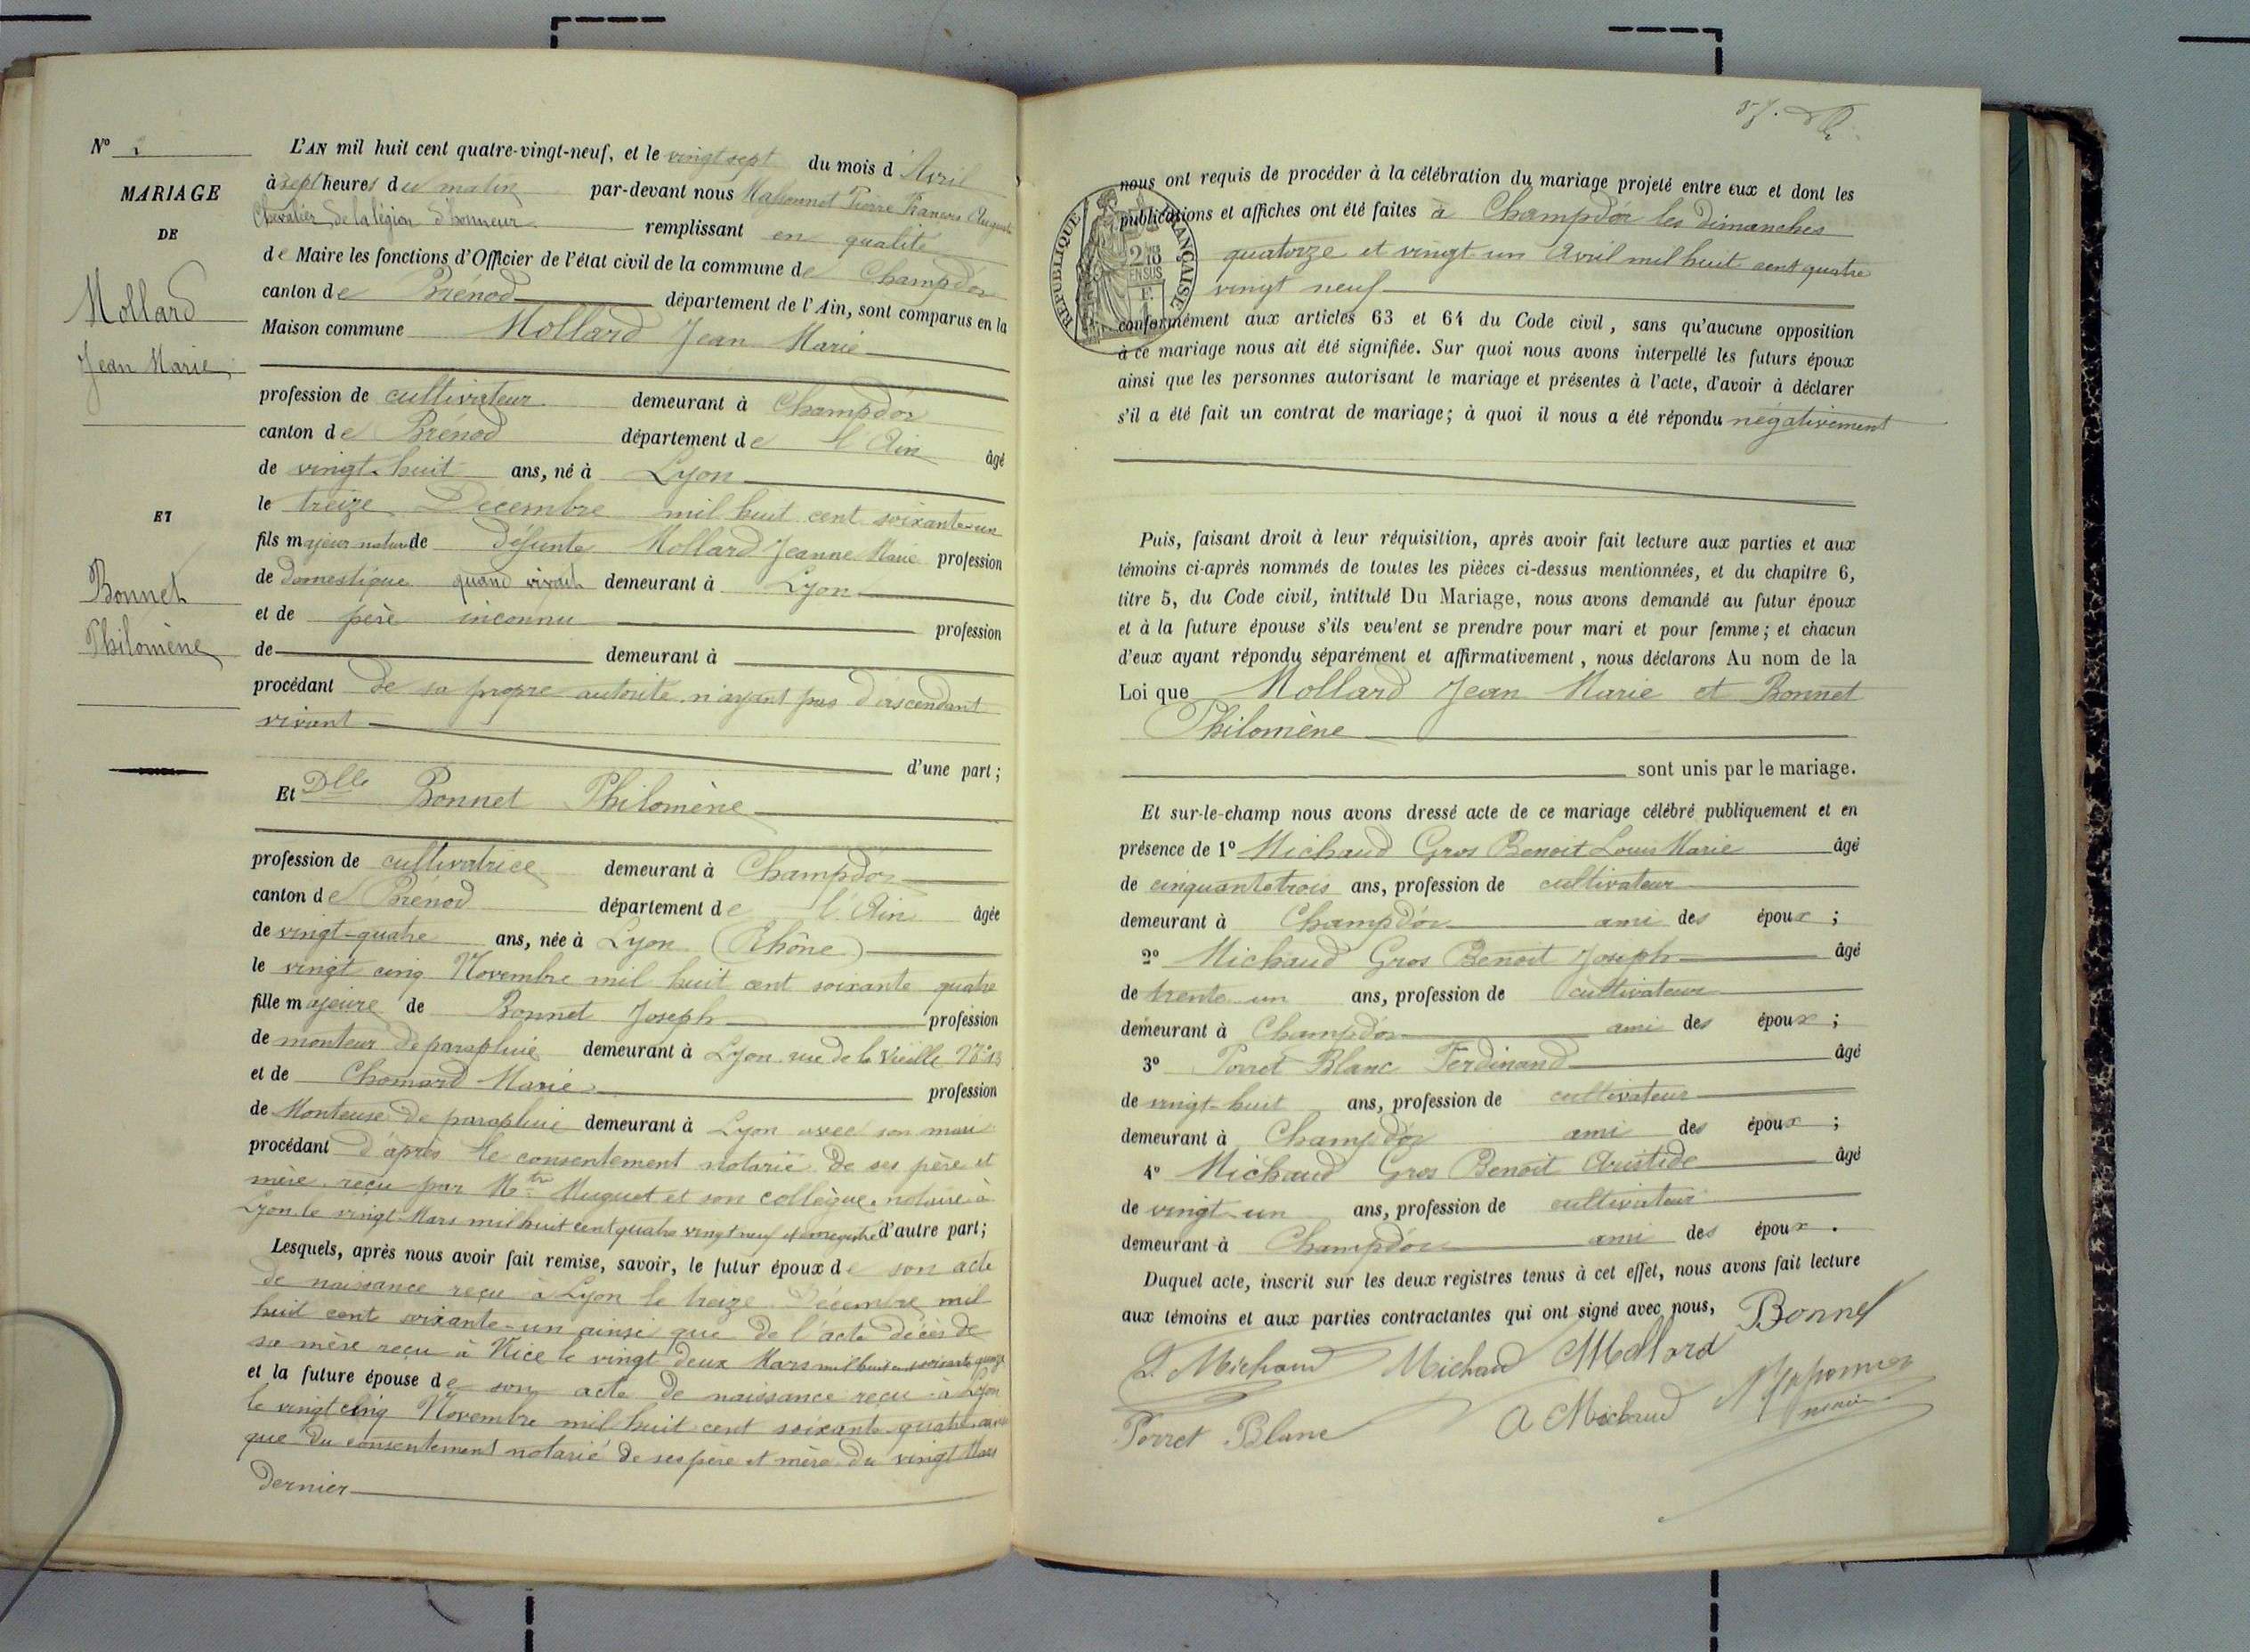 Nº
MARIAGE
DE
Mollard
Jean Marie
ET
Bonnet
Philomène
L'AN mil huit cent quatre-vingt-neuf, et le vingt sept du mois d'Avril
à sept heures du matin par-devant nous Massonnet Pierre François August
Chevalier de la légion d'honneur remplissant en qualité
de Maire les fonctions d'Officier de l'état civil de la commune de Champdor
canton de Brenod département de l'Ain, sont comparus en la
Maison commune Mollard Jean Marie
profession de cultivateur demeurant à Champdor
canton de Brénod département de l'Ain âgé
de vingt-huit ans, né à Lyon
le treize Decembre mil huit cent soixante-un
fils majeur naturel de défunte Mollard Jeanne Marie profession
de domestique quand vivait demeurant à Lyon
et de père inconnu profession
de demeurant à
procédant de sa propre autorité n'ayant pas d'ascendant
vivant
d'une part;
Et Dlle Bonnet Philomène
profession de cultivatrice demeurant à Champdor
canton de Brénod département de l'Ain âgée
de vingt-quatre ans, née à Lyon (Rhône)
le vingt cinq Novembre mil huit cent soixante quatre
fille majeure de Bonnet Joseph profession
de monteur de parapluie demeurant à Lyon rue de la Vieille Nº 13
et de Chomard Marie profession
de Monteuse de parapluie demeurant à Lyon avec son mari
procédant d'après le consentement notarié de ses père et
mère reçu par Mtre Muguet et son collègue notaire à
Lyon le vingt Mars mil huit cent quatre vingt neuf et enregistré d'autre part;
Lesquels, après nous avoir fait remise, savoir, le futur époux de son acte
de naissance reçu à Lyon le treize Décembre mil
huit cent soixante-un ainsi que de l'acte décès de
sa mère reçu à Nice le vingt deux Mars mil huit soixante quinze
et la future épouse de son acte de naissance reçu à Lyon
le vingt cinq Novembre mil huit cent soixante quatre
que du consentement notarié de ses père et mère du vingt Mars
dernier
nous ont requis de procéder à la célébration du mariage projeté entre eux et dont les
publications et affiches ont été faites à Champdor les dimanches
quatorze et vingt un Avril mil huit cent quatre
vingt neuf
RÉPUBLIQUE FRANÇAISE
2/10 EN SUS
conformément aux articles 63 et 64 du Code civil, sans qu'aucune opposition
à ce mariage nous ait été signifiée. Sur quoi nous avons interpellé les futurs époux
ainsi que les personnes autorisant le mariage et présentes à l'acte, d'avoir à déclarer
s'il a été fait un contrat de mariage; à quoi il nous a été répondu négativement
Puis, faisant droit à leur réquisition, après avoir fait lecture aux parties et aux
témoins ci-après nommés de toutes les pièces ci-dessus mentionnées, et du chapitre 6,
titre 5, du Code civil, intitulé Du Mariage, nous avons demandé au futur époux
et à la future épouse s'ils veulent se prendre pour mari et pour femme; et chacun
d'eux ayant répondu séparément et affirmativement, nous déclarons Au nom de la
Loi que Mollard Jean Marie et Bonnet
Philomène
sont unis par le mariage.
Et sur-le-champ nous avons dressé acte de ce mariage célébré publiquement et en
présence de 1º Michaud Gros Benoit Louis Marie âgé
de cinquante trois ans, profession de cultivateur
demeurant à Champdor ami des époux;
2º Michaud Gros Benoit Joseph âgé
de trente un ans, profession de cultivateur
demeurant à Champdor ami des époux;
3º Porret Blanc Ferdinand âgé
de vingt-huit ans, profession de cultivateur
demeurant à Champdor ami des époux;
4º Michaud Gros Benoit Aristide âgé
de vingt-un ans, profession de cultivateur
demeurant à Champdor ami des époux.
Duquel acte, inscrit sur les deux registres tenus à cet effet, nous avons fait lecture
aux témoins et aux parties contractantes qui ont signé avec nous, Bonnet
L. Michaud Michaud Mollard
Porret Blanc A Michaud